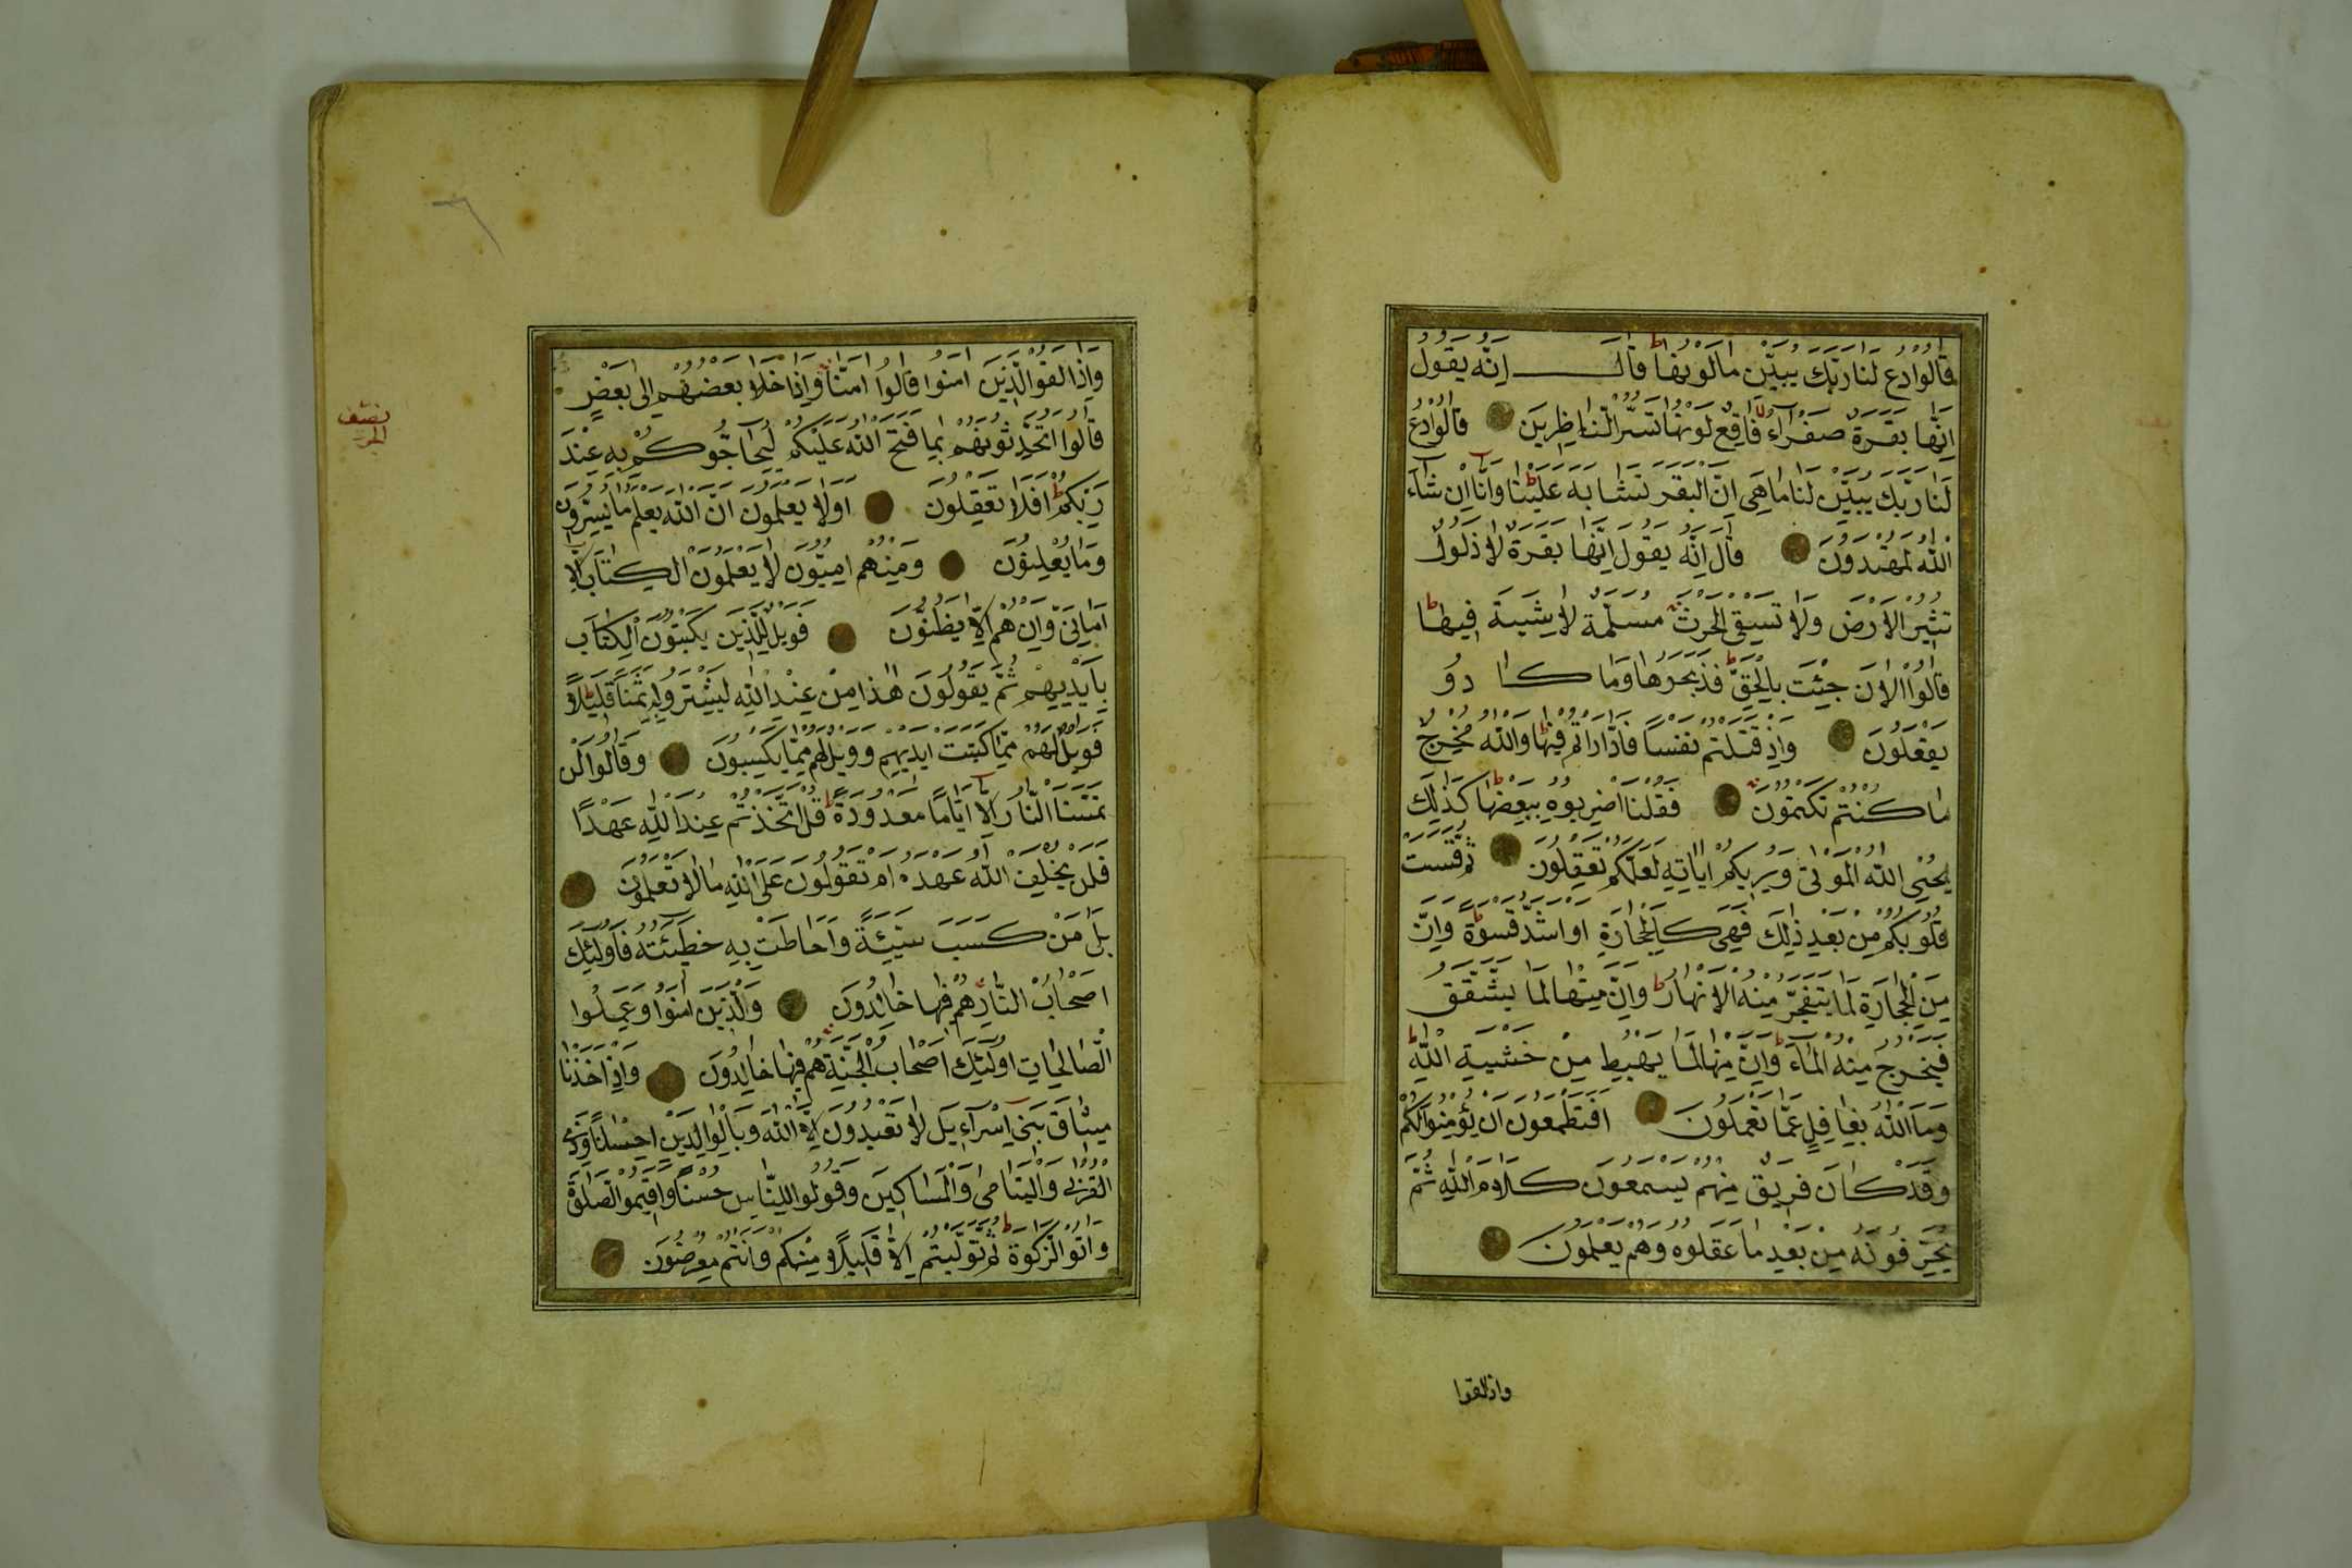 قَالُوا ادْعُ لَنَا رَبَّكَ يُبَيِّنْ لَنَا مَا لَوْنُهَا قَالَ اِنَّهُ يَقُولُ
اِنَّهَا بَقَرَةٌ صَفْرَاءُ فَاقِعٌ لَوْنُهَا تَسُرُّ النَّاظِرِينَ قَالُوا ادْعُ
لَنَا رَبَّكَ يُبَيِّنْ لَنَا مَا هِيَ اِنَّ الْبَقَرَ تَشَابَهَ عَلَيْنَا وَاِنَّا اِنْ شَاءَ
اللّٰهُ لَمُهْتَدُونَ قَالَ اِنَّهُ يَقُولُ اِنَّهَا بَقَرَةٌ لَا ذَلُولٌ
تُثِيرُ الْاَرْضَ وَلَا تَسْقِي الْحَرْثَ مُسَلَّمَةٌ لَا شِيَةَ فِيهَا
قَالُوا الْاٰنَ جِئْتَ بِالْحَقِّ فَذَبَحُوهَا وَمَا كَادُو
يَفْعَلُونَ وَاِذْ قَتَلْتُمْ نَفْسًا فَادَّارَاْتُمْ فِيهَا وَاللّٰهُ مُخْرِجٌ
مَا كُنْتُمْ تَكْتُمُونَ فَقُلْنَا اضْرِبُوهُ بِبَعْضِهَا كَذٰلِكَ
يُحْيِي اللّٰهُ الْمَوْتٰى وَيُرِيكُمْ اٰيَاتِهِ لَعَلَّكُمْ تَعْقِلُونَ ثُمَّ قَسَتْ
قُلُوبُكُمْ مِنْ بَعْدِ ذٰلِكَ فَهِيَ كَالْحِجَارَةِ اَوْ اَشَدُّ قَسْوَةً وَاِنَّ
مِنَ الْحِجَارَةِ لَمَا يَتَفَجَّرُ مِنْهُ الْاَنْهَارُ وَاِنَّ مِنْهَا لَمَا يَشَّقَّقُ
فَيَخْرُجُ مِنْهُ الْمَاءُ وَاِنَّ مِنْهَا لَمَا يَهْبِطُ مِنْ خَشْيَةِ اللّٰهِ
وَمَا اللّٰهُ بِغَافِلٍ عَمَّا تَعْمَلُونَ اَفَتَطْمَعُونَ اَنْ يُؤْمِنُوا لَكُمْ
وَقَدْ كَانَ فَرِيقٌ مِنْهُمْ يَسْمَعُونَ كَلَامَ اللّٰهِ ثُمَّ
يُحَرِّفُونَهُ مِنْ بَعْدِ مَا عَقَلُوهُ وَهُمْ يَعْلَمُونَ
واذالقوا
٦
نصف الجزء
وَاِذَا لَقُوا الَّذِينَ اٰمَنُوا قَالُوا اٰمَنَّا وَاِذَا خَلَا بَعْضُهُمْ اِلٰى بَعْضٍ
قَالُوا اَتُحَدِّثُونَهُمْ بِمَا فَتَحَ اللّٰهُ عَلَيْكُمْ لِيُحَاجُّوكُمْ بِهِ عِنْدَ
رَبِّكُمْ اَفَلَا تَعْقِلُونَ اَوَلَا يَعْلَمُونَ اَنَّ اللّٰهَ يَعْلَمُ مَا يُسِرُّونَ
وَمَا يُعْلِنُونَ وَمِنْهُمْ اُمِّيُّونَ لَا يَعْلَمُونَ الْكِتَابَ اِلَّا
اَمَانِيَّ وَاِنْ هُمْ اِلَّا يَظُنُّونَ فَوَيْلٌ لِلَّذِينَ يَكْتُبُونَ الْكِتَابَ
بِاَيْدِيهِمْ ثُمَّ يَقُولُونَ هٰذَا مِنْ عِنْدِ اللّٰهِ لِيَشْتَرُوا بِهِ ثَمَنًا قَلِيلًا
فَوَيْلٌ لَهُمْ مِمَّا كَتَبَتْ اَيْدِيهِمْ وَوَيْلٌ لَهُمْ مِمَّا يَكْسِبُونَ وَقَالُوا لَنْ
تَمَسَّنَا النَّارُ اِلَّا اَيَّامًا مَعْدُودَةً قُلْ اَتَّخَذْتُمْ عِنْدَ اللّٰهِ عَهْدًا
فَلَنْ يُخْلِفَ اللّٰهُ عَهْدَهُ اَمْ تَقُولُونَ عَلَى اللّٰهِ مَا لَا تَعْلَمُونَ
بَلٰى مَنْ كَسَبَ سَيِّئَةً وَاَحَاطَتْ بِهِ خَطِيئَتُهُ فَاُولٰئِكَ
اَصْحَابُ النَّارِ هُمْ فِيهَا خَالِدُونَ وَالَّذِينَ اٰمَنُوا وَعَمِلُوا
الصَّالِحَاتِ اُولٰئِكَ اَصْحَابُ الْجَنَّةِ هُمْ فِيهَا خَالِدُونَ وَاِذْ اَخَذْنَا
مِيثَاقَ بَنِي اِسْرَاءِيلَ لَا تَعْبُدُونَ اِلَّا اللّٰهَ وَبِالْوَالِدَيْنِ اِحْسَانًا وَذِي
الْقُرْبٰى وَالْيَتَامٰى وَالْمَسَاكِينَ وَقُولُوا لِلنَّاسِ حُسْنًا وَاَقِيمُوا الصَّلٰوةَ
وَاٰتُوا الزَّكٰوةَ ثُمَّ تَوَلَّيْتُمْ اِلَّا قَلِيلًا مِنْكُمْ وَاَنْتُمْ مُعْرِضُونَ